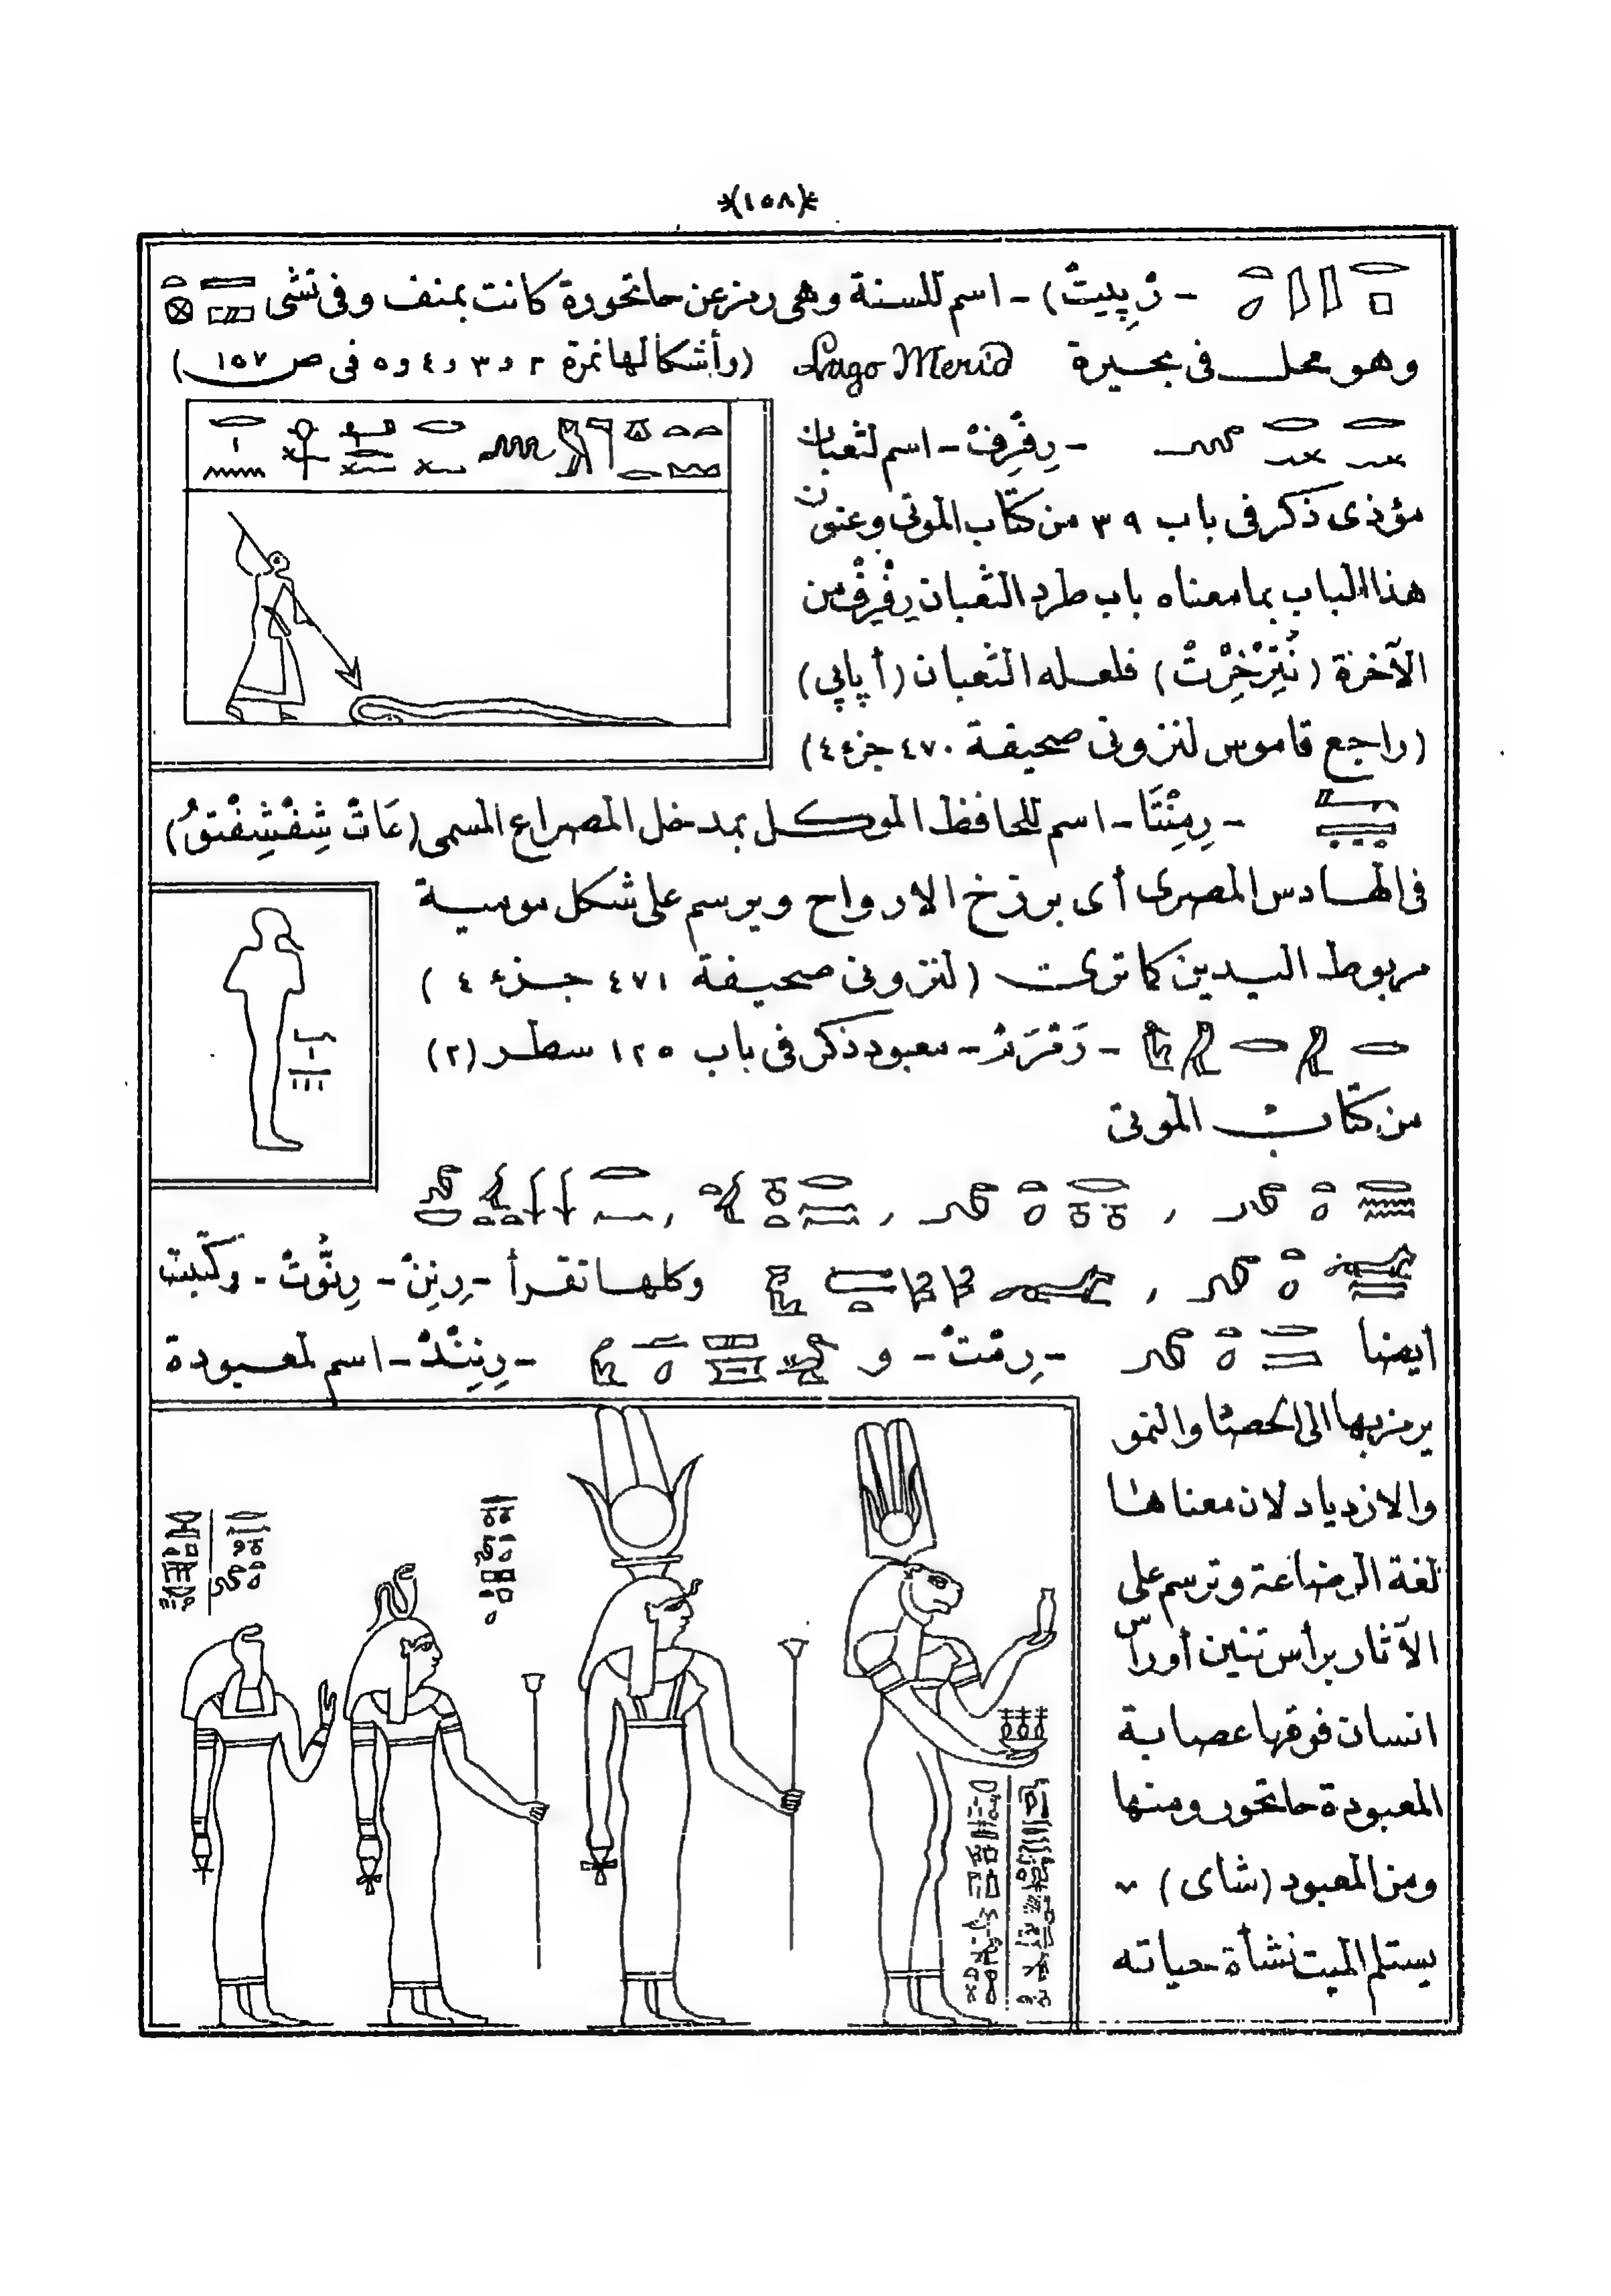 *(١٥٨)*
- رُپِيتْ) - اسم للسنة وهى رمز عن حاتحورة كانت بمنف وفى تشى
وهو محل فى بحيرة Lago Merid (وأشكالها نمرة ٢ و ٣ و ٤ و ٥ فى ص ١٥٧)
- رِفْرِفْ - اسم لثعبان
مؤذى ذكر فى باب ٣٩ من كتاب الموتى وعنون
هذا الباب بما معناه باب طرد الثعبان رِفْرِفْ من
الآخرة (نُتِرْخِرْتْ) فلعله الثعبان (أپاپى)
(راجع قاموس لنزونى صحيفة ٤٧٠ جزء ٤)
- رِمِنْتَا - اسم للحافظ الموكل بمدخل المصراع المسمى (عَاتْ شِفْشِفْتُو)
فى الهادس المصرى أى برزخ الارواح ويرسم على شكل مومية
مربوط اليدين كما ترى (لنزونى صحيفة ٤٧١ جزء ٤)
- رَمْرَمْ - معبود ذكر فى باب ١٢٥ سطر (٢)
من كتاب الموتى
وكلها تقرأ - رِنِنْ - رِنُّوتْ - وكتبت
أيضا - رِمْتْ - و - رِنِنْتْ - اسم لمعبودة
يرمز بها الى الحصاد والنمو
والازدياد لان معناها
لغة الرضاعة وترسم على
الآثار برأس تنين أو رأس
انسان فوقها عصابة
المعبودة حاتحور ومنها
ومن المعبود (شاى)
يستلم الميت نشأة حياته